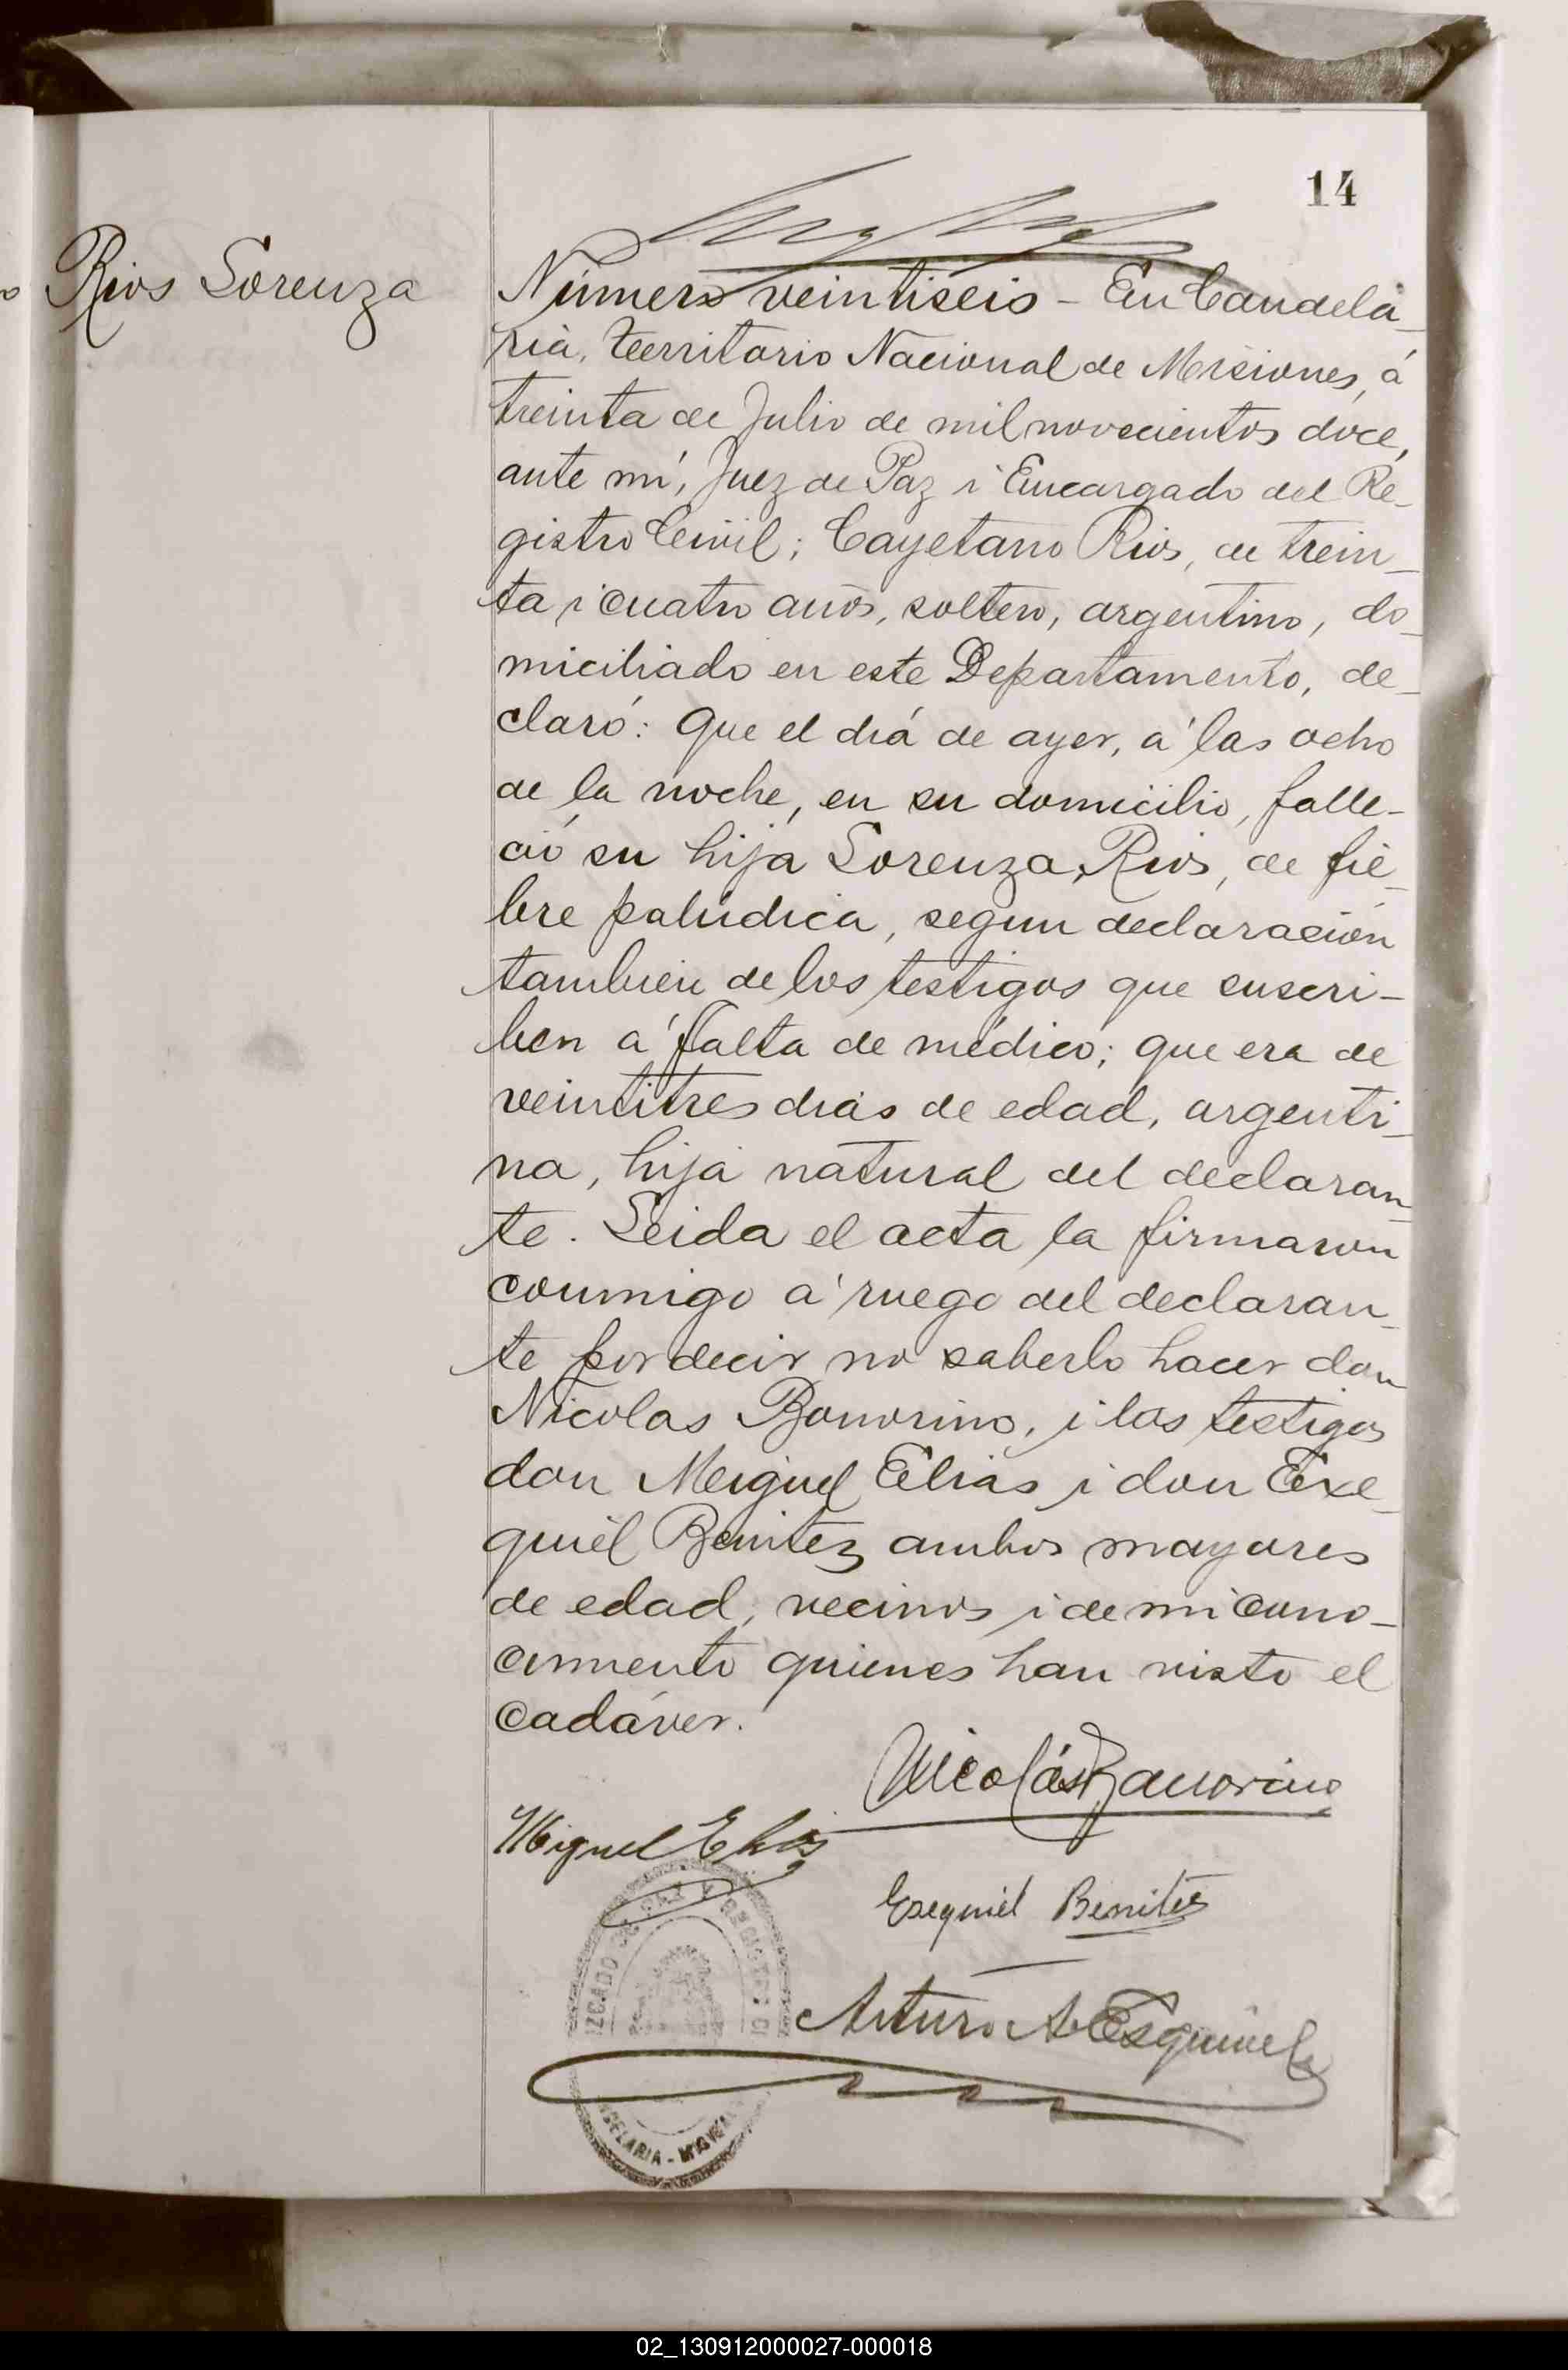 14
Rios Lorenza
Número veintiseis - En Candela-
ria, Territorio Nacional de Misiones, á
treinta de Julio de mil novecientos doce,
ante mí, Juez de Paz i Encargado del Re-
gistro Civil; Cayetano Rios, de trein-
ta i cuatro años, soltero, argentino, do-
miciliado en este Departamento, de-
claró: Que el día de ayer, á las ocho
de la noche, en su domicilio, falle-
ció su hija Lorenza Rios, de fie-
bre palúdica, segun declaración
tambien de los testigos que suscri-
ben á falta de médico; que era de
veintitres dias de edad, argenti-
na, hija natural del declaran-
te. Leida el acta la firmaron
conmigo á ruego del declaran-
te por decir no saberlo hacer don
Nicolas Bonorino, i los testigos
don Miguel Elias i don Exe-
quiel Benitez ambos mayores
de edad, vecinos i de mi cono-
cimiento quienes han visto el
cadáver.
Nicolás Bonorino
Miguel Elias
Exequiel Benites
Arturo A. Esquivel
ZGADO DE PAZ Y REGISTRO CI
DELARIA - MISIONES
02_130912000027-000018